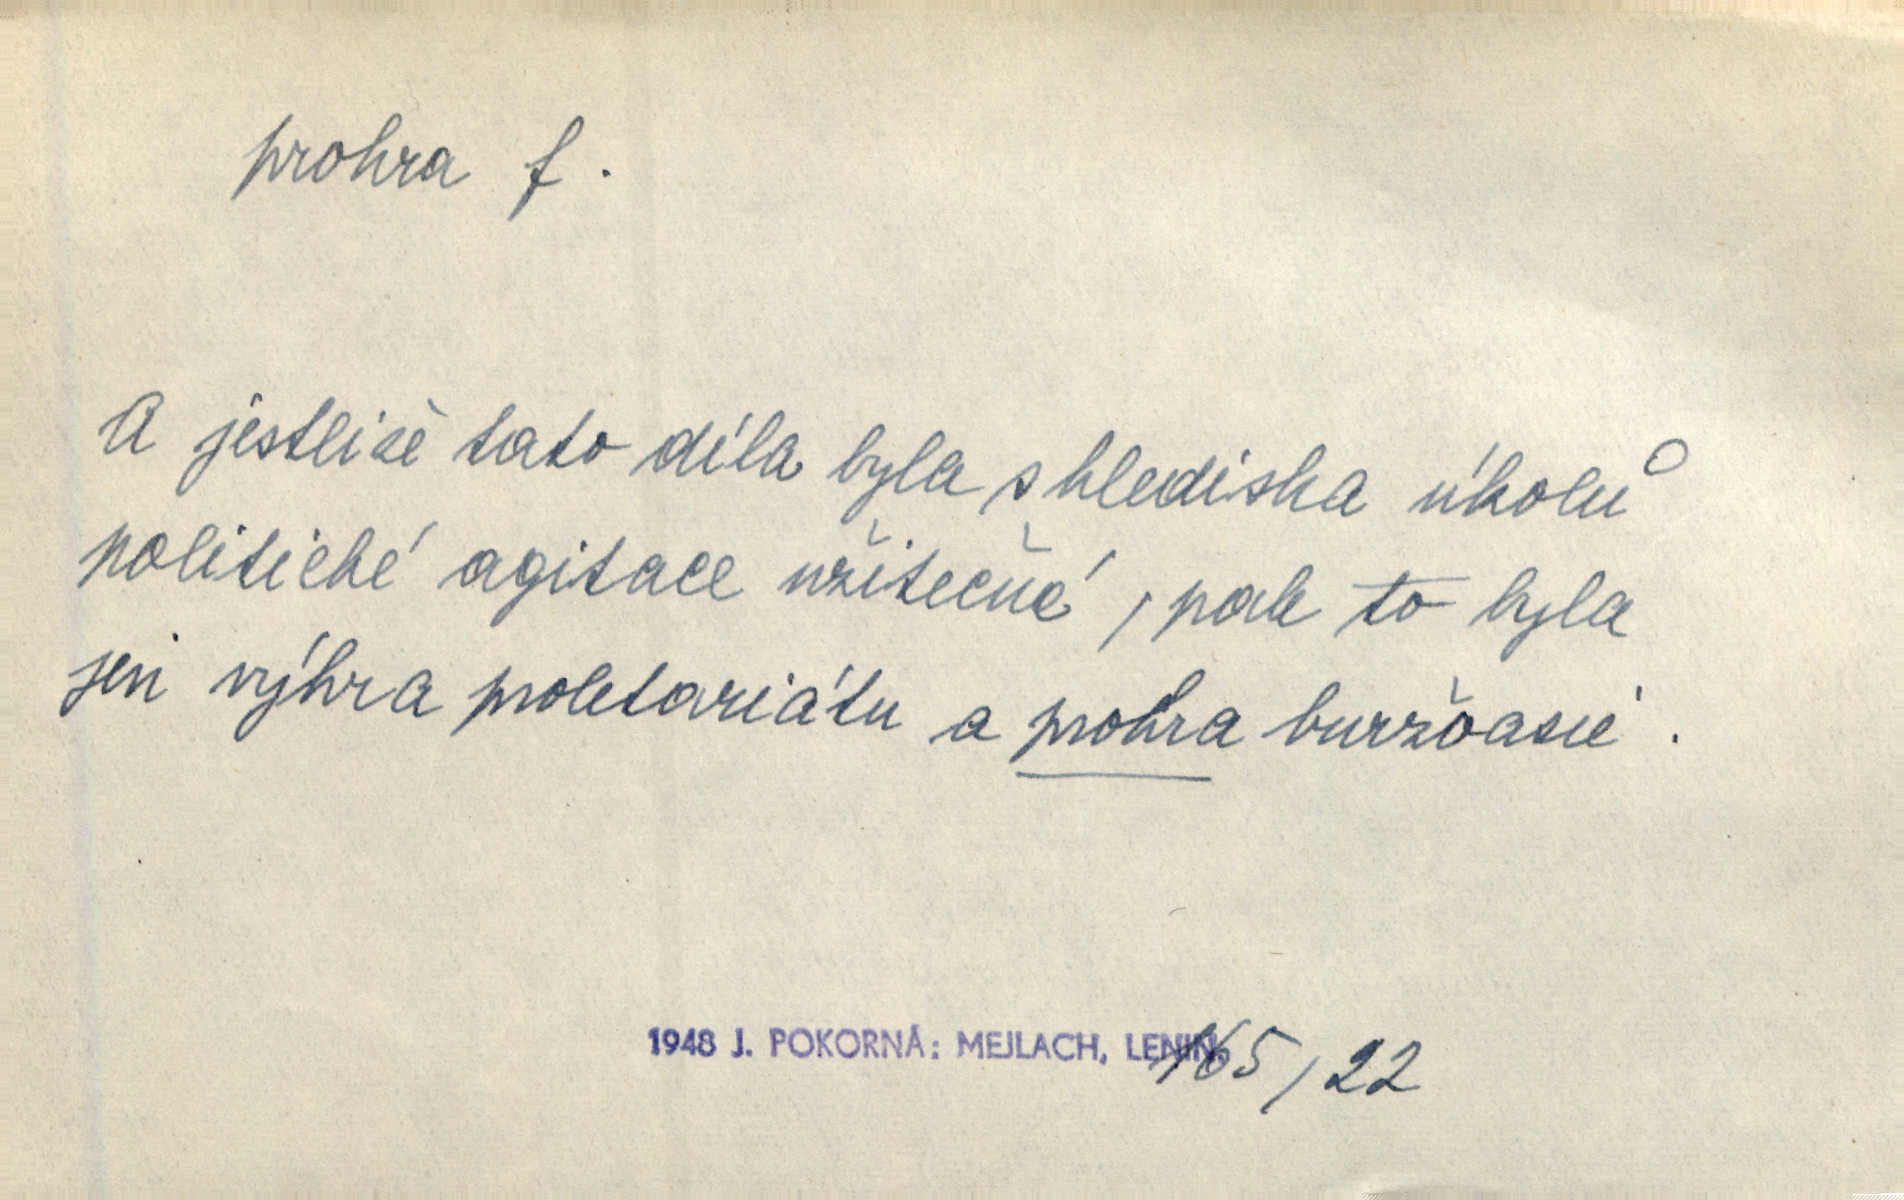 prohra f.
A jestliže tato díla byla s hlediska úkolů
politické agitace užitečné, pak to byla
jen výhra proletariátu a prohra buržoasie.
1948 J. POKORNÁ: MEJLACH, LENIN. 165/22